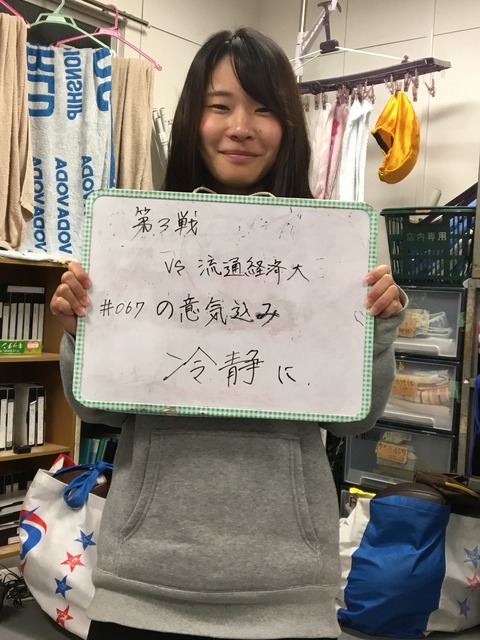 第3戦
VS 流通経済大
#067の意気込み
冷静に.
店内専用